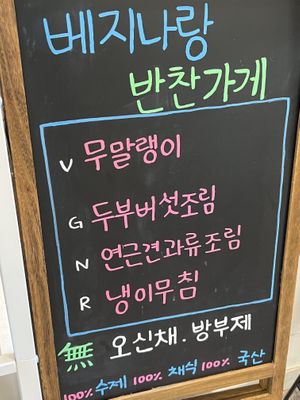 베지나랑
반찬가게
V 무말랭이
G 두부버섯조림
N 연근견과류조림
R 냉이무침
無 오신채.방부제
100% 수제 100% 채식 100% 국산